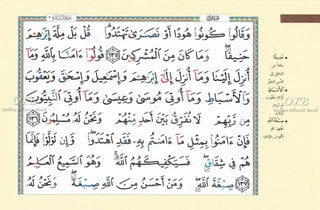 وَقَالُوا۟ كُونُوا۟ هُودًا أَوْ نَصَـٰرَىٰ تَهْتَدُوا۟ ۗ قُلْ بَلْ مِلَّةَ إِبْرَٰهِـۧمَ
حَنِيفًا ۖ وَمَا كَانَ مِنَ ٱلْمُشْرِكِينَ ١٣٥ قُولُوٓا۟ ءَامَنَّا بِٱللَّهِ وَمَآ
أُنزِلَ إِلَيْنَا وَمَآ أُنزِلَ إِلَىٰٓ إِبْرَٰهِـۧمَ وَإِسْمَـٰعِيلَ وَإِسْحَـٰقَ وَيَعْقُوبَ
وَٱلْأَسْبَاطِ وَمَآ أُوتِىَ مُوسَىٰ وَعِيسَىٰ وَمَآ أُوتِىَ ٱلنَّبِيُّونَ
مِن رَّبِّهِمْ لَا نُفَرِّقُ بَيْنَ أَحَدٍ مِّنْهُمْ وَنَحْنُ لَهُۥ مُسْلِمُونَ ١٣٦
فَإِنْ ءَامَنُوا۟ بِمِثْلِ مَآ ءَامَنتُم بِهِۦ فَقَدِ ٱهْتَدَوا۟ ۖ وَّإِن تَوَلَّوْا۟ فَإِنَّمَا
هُمْ فِى شِقَاقٍ ۖ فَسَيَكْفِيكَهُمُ ٱللَّهُ ۚ وَهُوَ ٱلسَّمِيعُ ٱلْعَلِيمُ
١٣٧ صِبْغَةَ ٱللَّهِ ۖ وَمَنْ أَحْسَنُ مِنَ ٱللَّهِ صِبْغَةً ۖ وَنَحْنُ لَهُۥ
حَنِيفًا
الْأَسْبَاطِ